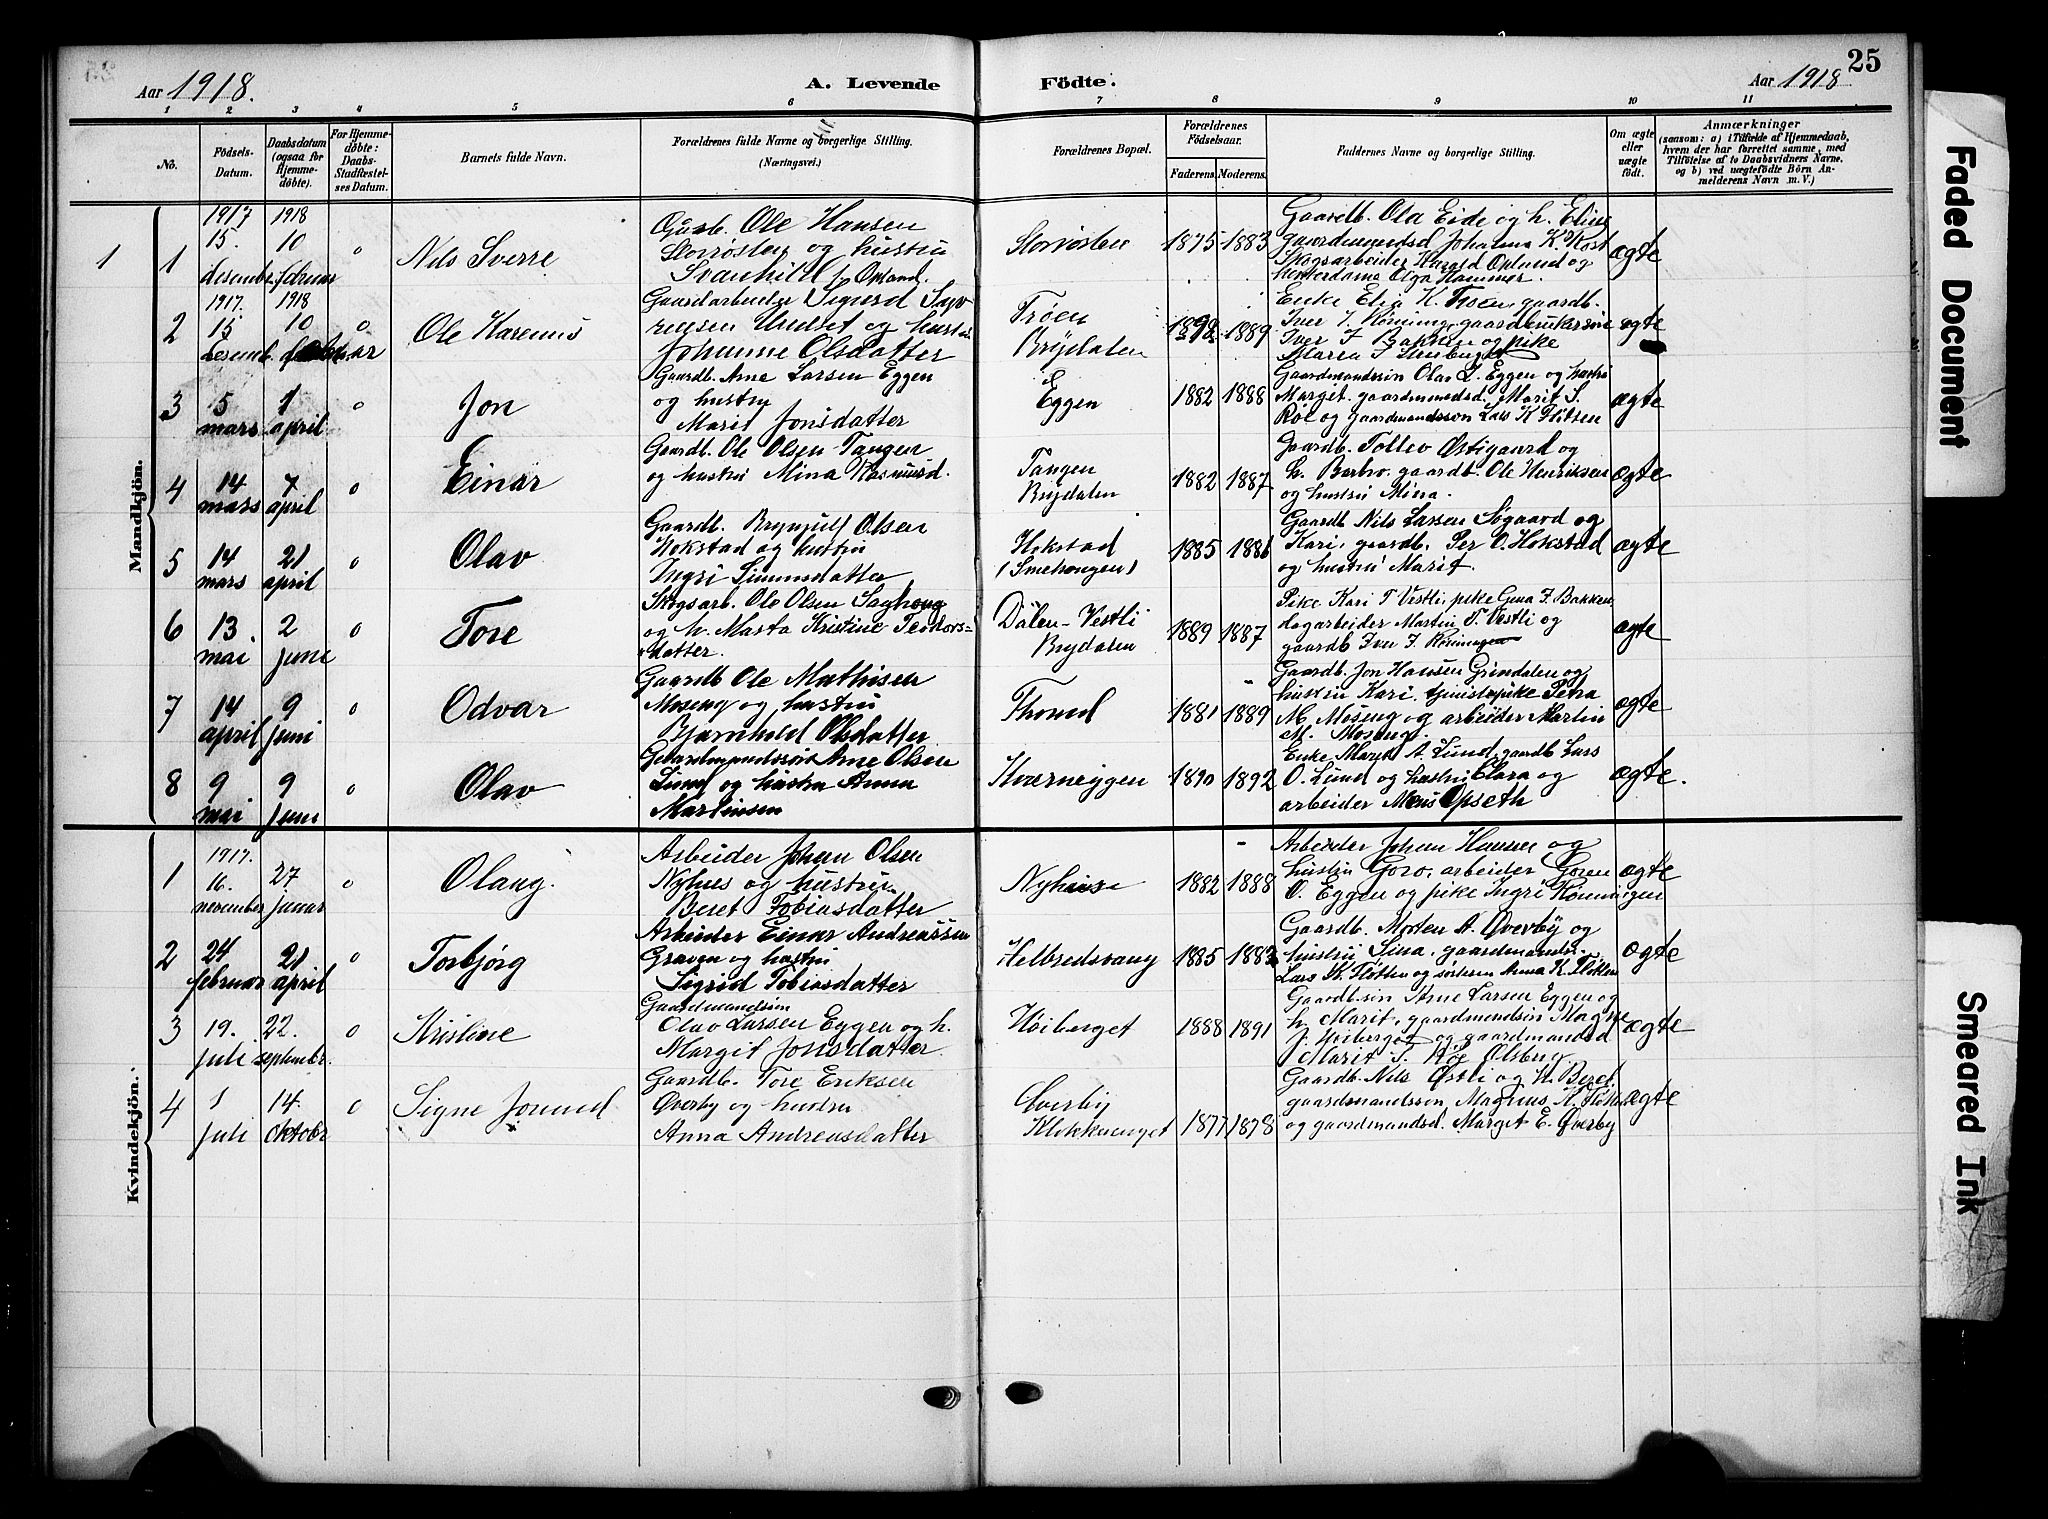 Aar 1918.
A. Levende
Födte.
Aar 1918
25
1 2 3 4 5 6 7 8 9 10 11
No.
Födsels-
Datum.
Daabsdatum
(ogsaa for
Hjemme-
döbte).
For Hjemme-
döbte:
Daabs-
Stadfæstel-
ses Datum.
Barnets fulde Navn.
Forældrenes fulde Navne og borgerlige Stilling.
(Næringsvei.)
Forældrenes Bopæl.
Forældrenes
Födselsaar.
Faderens. Moderens.
Faddernes Navne og borgerlige Stilling.
Om ægte
eller
uægte
födt.
Anmærkninger
(saasom: a) i Tilfælde af Hjemmedaab,
hvem der har forrettet samme, med
Tilföielse af to Daabsvidners Navne,
og b) ved uægtefödte Börn An-
melderens Navn m. V.)
Mandkjön.
1
1
1917
15.
desember
1918
10
februar
0
Nils Sverre
Gaardb. Ole Hansen
Storrøsten og hustru
Svanhild f. Opland.
Storrøsten
1875 1883
Gaardb. Ola Eide og h. Eline
gaardmandsd Johanna K. Røst
Skogsarbeider Harald Opland og
Olga Hammer.
ægte
2
1917.
15
desemb.
1918
10
februar
0
Ole Karenus
Gaardarbeider Sigurd Sør-
ensen Undset og hustru
Johanne Olsdatter
Trøen
Brydalen
1892 1889
Enke Elia K. Trøen, gaardb.
Iver J. Rønning, gaardbrukersøn
Iver J Bakken og pike
ægte
3
5
mars
1
april
0
Jon
Gaardb. Arne Larsen Eggen
og hustru
Marit Jonsdatter
Eggen
1882 1888
Gaardmandssøn Olav L. Eggen og hustru
Margit. gaardmandsd. Marit S.
Røe og gaardmandssøn Lars K Fløtten
ægte
4
14
mars
7
april
0
Einar
Gaardb. Ole Olsen Tangen
og hustru Mina Rasmusd.
Tangen
Brydalen
1882 1887
Gaardb. Tollev Østigaard og
h. Berho. gaardb. Ole Henriksen
og hustru Mina.
ægte
5
14
mars
21
april
0
Olav
Gaardb. Brynjulf Olsen
Hokstad og hustru
Ingri Simensdatter
Hokstad
(Smehaugen)
1885 1886
Gaardb Nils Larsen Søgaard og
Kari, gaardb. Per O. Hokstad
og hustru Marit.
ægte
6
13.
mai
2
juni
0
Tore
Skogsarb. Ole Olsen Saghaug
og h. Marta Kristine Teodors-
datter.
Dalen-Vestli
Brydalen
1889 1887
Pike Kari T Vestli, pike Gina J. Bakken,
dagarbeider Martin T. Vestli og
gaardb Iver J. Rønningen
ægte
7
14
april
9
juni
0
Odvar
Gaardb Ole Mathisen
Moseng og hustru
Bjarnhild Olsdatter
Thoned
1881 1889
Gaardb. Jon Hansen Grindalen og
hustru Kari, tjenestepike Petra
M. Moseng og arbeider Martin
M. Moseng.
ægte
8
9
mai
9
juni
0
Olav
Gaardmandssøn Arne Olsen
Lund og hustru Anna
Martinsen
Kverneggen
1890 1892
Enke Marit A. Lund, gaardb Lars
O. Lund og hustru Clara og
arbeider Mons Opseth
ægte.
Kvindekjön.
1
1917.
16.
november
27
januar
0
Olaug.
Arbeider Johan Olsen
Nyhus og hustru
Beret Tobiasdatter
Nyhuse
1882 1888
Arbeider Johan Hansen og
hustru Goro, arbeider Goren
O. Eggen og pike Ingri Rønningen
ægte
2
24
februar
21
april
0
Torbjørg
Arbeider Einar Andreassen
Graven og hustru
Sigrid Tobiasdatter
Helbredsvang
1885 1883
Gaardb. Morten A. Øverby og
hustru Sina, gaardmandss.
Lars K. Fløtten og søsteren Anna K. Fløtten
ægte
3
19.
juli
22.
september.
0
Kristine
Gaardmandssøn
Olav Larsen Eggen og h.
Margit Jonsdatter
Høiberget
1888 1891
Gaardb.søn Arne Larsen Eggen og
h. Marit, gaardmandssøn Magne
J. Høiberget og gaardmandsd
Marit S. Røe Olsberg
ægte
4
1
juli
14.
oktobr
0
Signe Jorund
Gaardb. Tore Eriksen
Øverby og hustru
Anna Andreasdatter
Øverby
Klokkarenget
1877 1878
Gaardb. Nils Østli og h. Beret.
gaardmandssøn Magnus K. Fløtten
og gaardmandsd. Marget E. Øverby
ægte
Faded Document
Smeared Ink